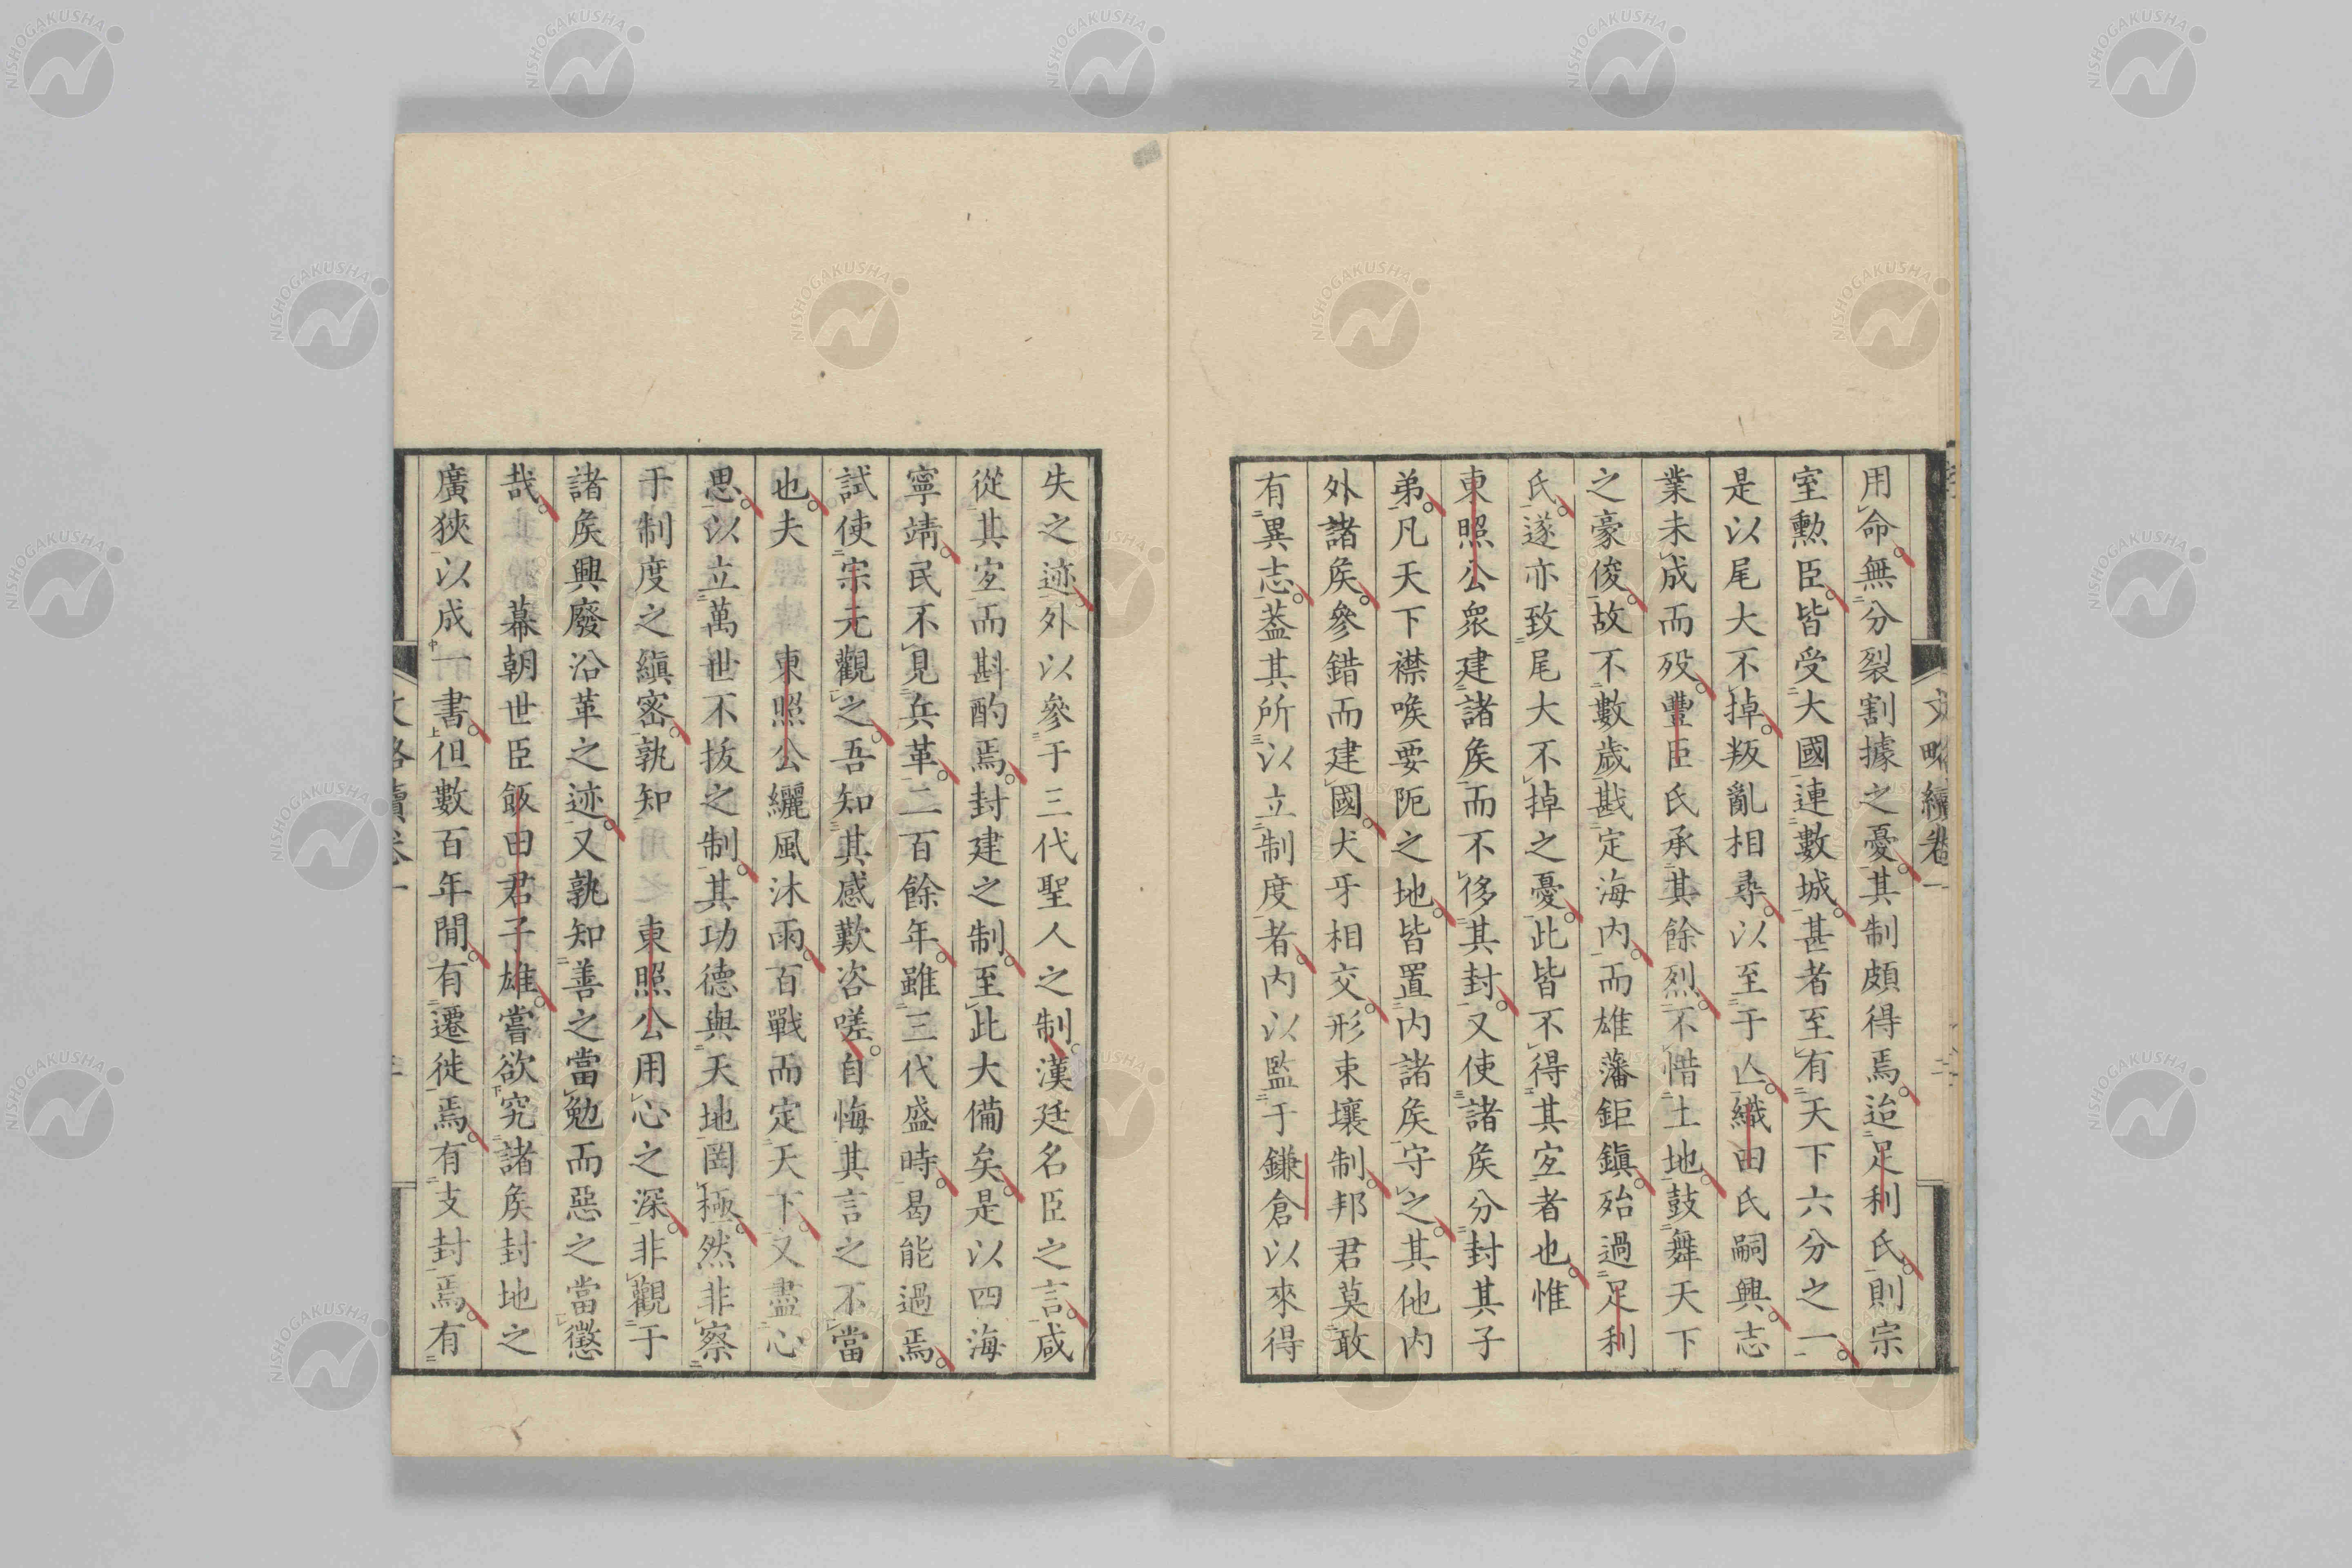 用命無分裂割據之憂其制頗得焉迨足利氏則宗
室勲臣皆受大國連數城甚者至有天下六分之一
是以尾大不掉叛亂相尋以至于亾織田氏嗣興志
業未成而歿豐臣氏承其餘烈不惜土地鼓舞天下
之豪俊故不數歳戡定海内而雄藩鉅鎭殆過足利
氏遂亦致尾大不掉之憂此皆不得其宐者也惟
東照公衆建諸矦而不侈其封又使諸矦分封其子
弟凡天下襟喉要阨之地皆置内諸矦守之其他内
外諸矦參錯而建國犬牙相交形束壤制邦君莫敢
有異志葢其所以立制度者内以監于鎌倉以來得
失之迹外以參于三代聖人之制漢廷名臣之言咸
從其宐而斟酌焉封建之制至此大備矣是以四海
寧靖民不見兵革二百餘年雖三代盛時曷能過焉
試使宗元觀之吾知其感歎咨嗟自悔其言之不當
也夫 東照公纚風沐雨百戰而定天下又盡心
思以立萬世不拔之制其功德與天地罔極然非察
于制度之縝密孰知 東照公用心之深非觀于
諸矦興廢沿革之迹又孰知善之當勉而惡之當懲
哉 幕朝世臣飯田君子雄嘗欲究諸矦封地之
廣狹以成一書但數百年間有遷徙焉有支封焉有
文略續卷一
NISHOGAKUSHA